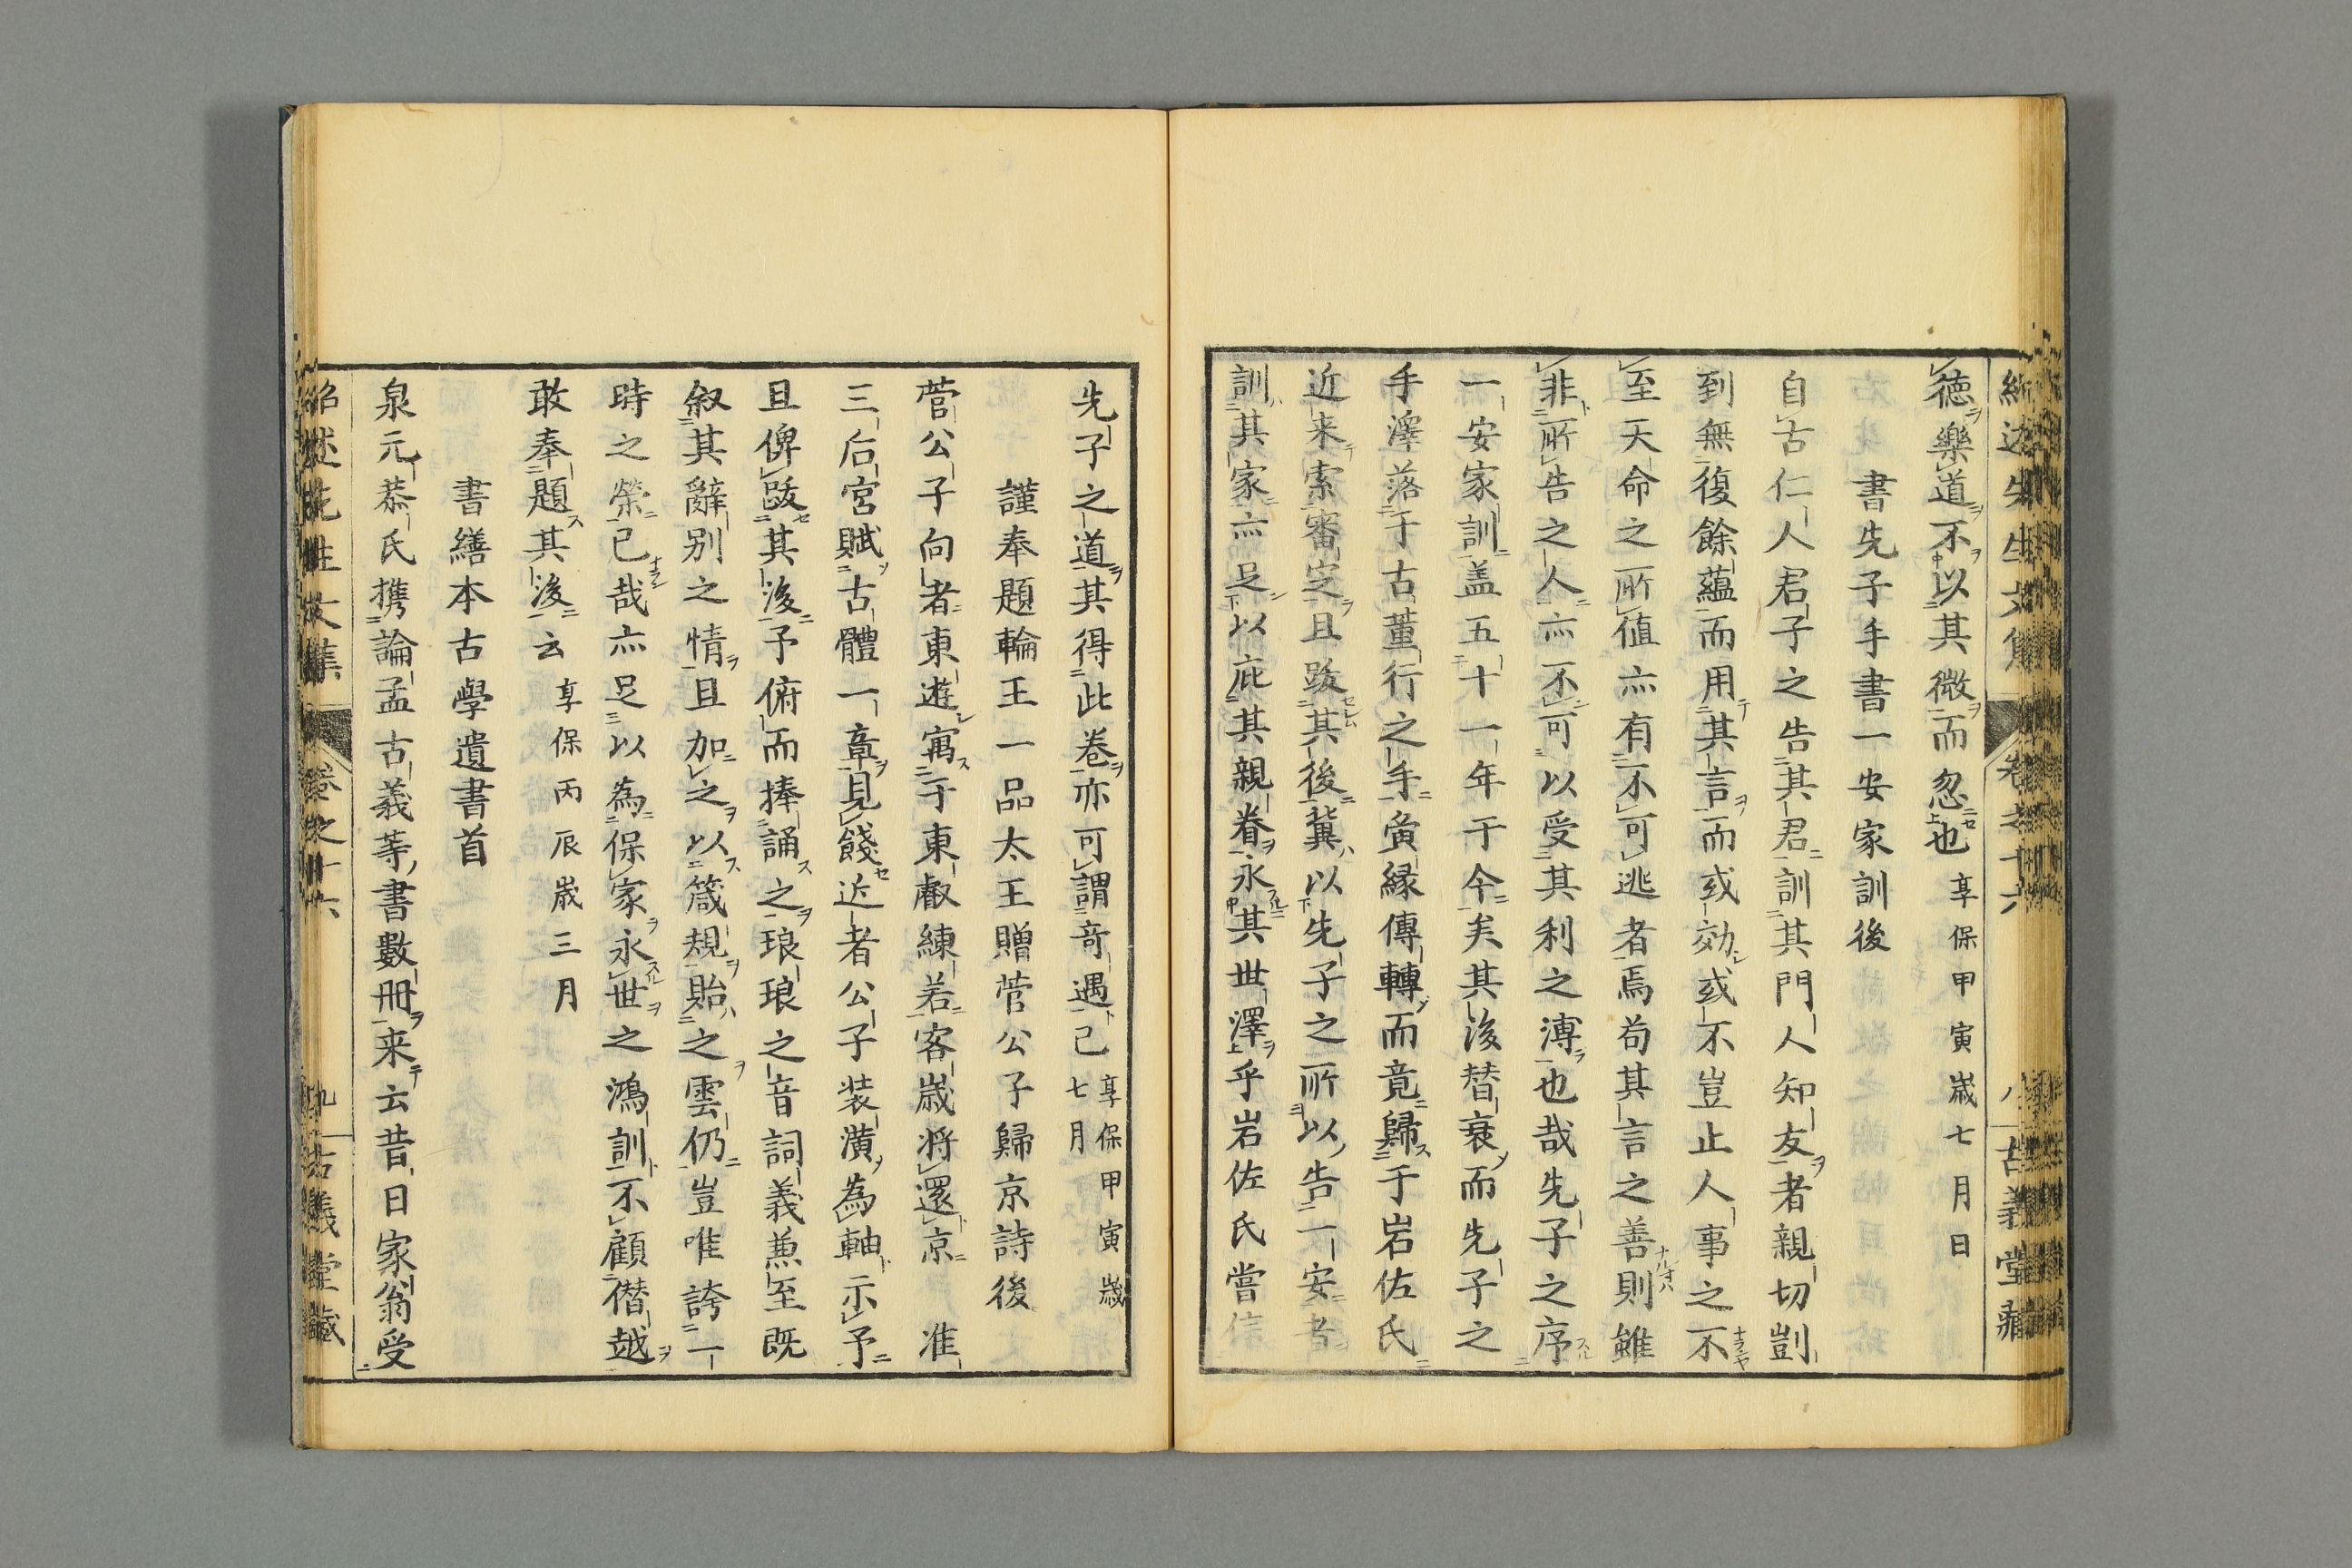 紹述先生文集 卷之十六 八 古義堂藏
德樂道不以其微而忽也 享保甲寅歲七月日
書先子手書一安家訓後
自古仁人君子之告其君訓其門人知友者親切剴
到無復餘蘊而用其言而或効或不豈止人事之不
至天命之所値亦有不可逃者焉苟其言之善則雖
非所告之人亦不可以受其利之溥也哉先子之序
一安家訓盖五十一年于今矣其後替衰而先子之
手澤落于古董行之手夤縁傳轉而竟歸于岩佐氏
近来索審定且跋其後冀以先子之所以告一安者
訓其家亦足以庇其親眷永其世澤乎岩佐氏嘗信
先子之道其得此卷亦可謂奇遇已 享保甲寅歲七月
謹奉題輪王一品太王贈菅公子歸京詩後
菅公子向者東遊寓于東叡練若客歲将還京 准
三后宮賦古體一章見餞近者公子装潢為軸示予
且俾跋其後予俯而捧誦之琅琅之音詞義兼至既
叙其辭别之情且加之以箴規貽之雲仍豈唯誇一
時之榮已哉亦足以為保家永世之鴻訓不顧僭越
敢奉題其後云 享保丙辰歲三月
書繕本古學遺書首
泉元恭氏携論孟古義等書數册来云昔日家翁受
紹述先生文集 卷之十六 九 古義堂藏